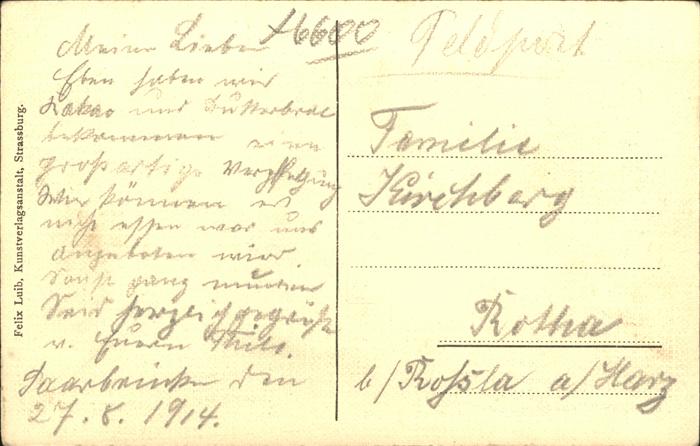 Meine Lieben
Eben haben wir
Kakao und Butterbrot
bekommen eine
großartige Verpflegung
Wir können es
nicht essen was uns
angeboten wird
Sonst ganz munter
Seid herzlich gegrüßt
v. Euern
Saarbrücken den
27. 8. 1914.
Felix Luib, Kunstverlagsanstalt, Strassburg.
16600
Feldpost
Familie
Kirchberg
Rotha
b/Roßla a/Harz